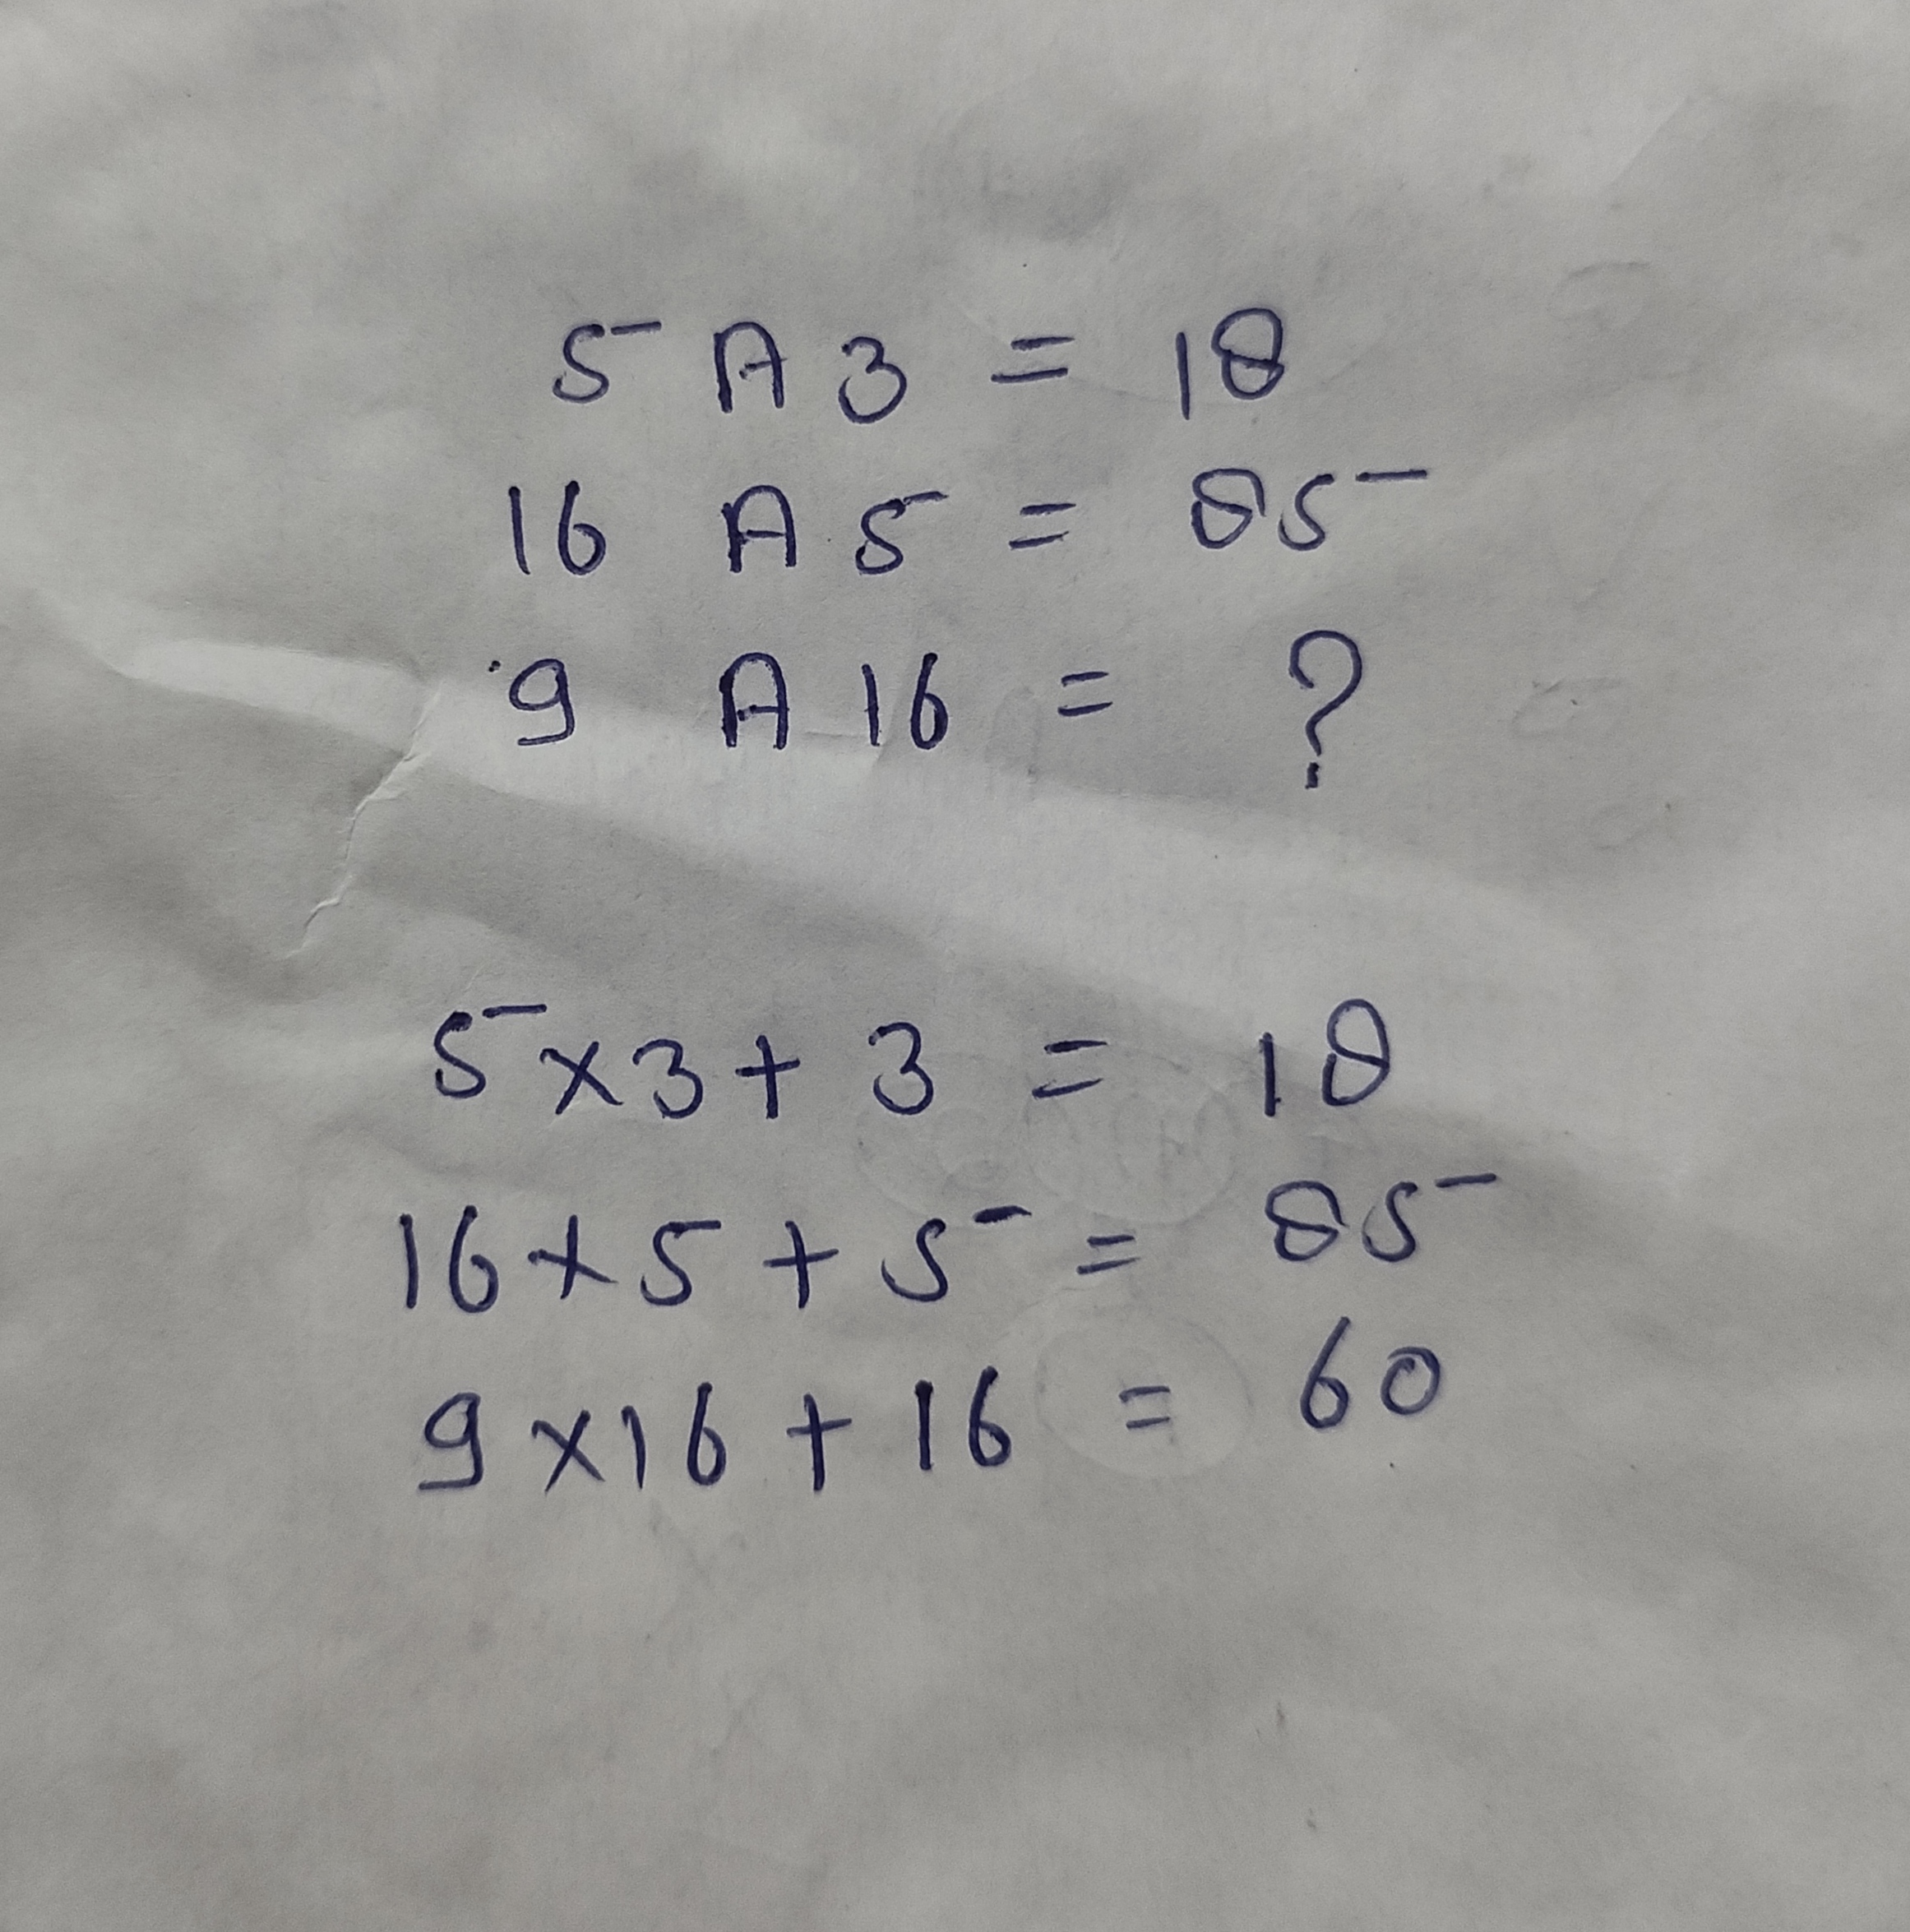 5 A 3 = 18
16 A 5 = 85
9 A 16 = ?
5 × 3 + 3 = 18
16 × 5 + 5 = 85
9 × 16 + 16 = 60